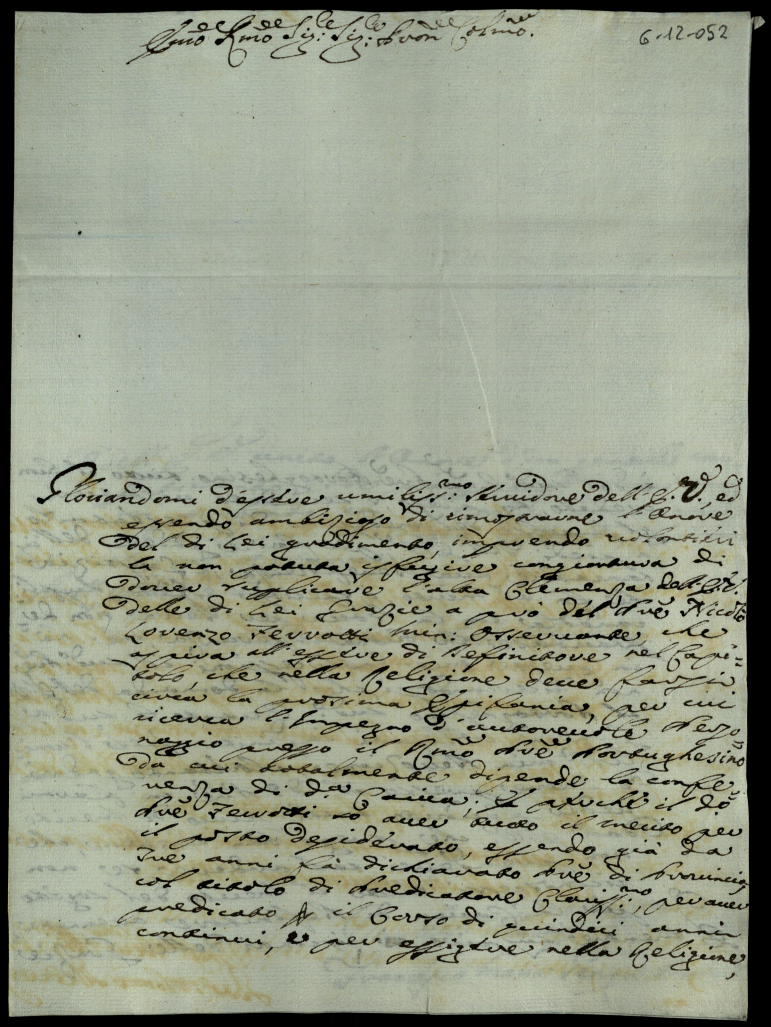 6-12-052
Sig: Sig: Pron Colmo.
Gloriandomi d'essere umiliss:mo Servidore dell S. V., ed
essendo ambizioso di rimostrarne l'Onore
del di Lei gradimento, imprendo
la non potuta congiontura di
dover supplicare l'alta Clemenza dell
delle di Lei Grazie a prò del Prē Nicolò
Lorenzo Ferrotti Min: Osservante, che
aspira all'essere di Definitore nel Capi=
tolo, che nella Religione deve farsi in
circa la prossima Epifania, per cui
ricerca l'Impegno d'autorevole Perso
naggio presso il Rmo Prē Portughesino
da cui totalmente dipende la confe
renza di da Carica; E perche il do
Prē Ferrotti so aver tutto il merito per
il posto desiderato, essendo già da
tre anni fà dichiarato Prē di Provincia,
col titolo di Predicatore Clariss:mo, per aver
predicato il Corso di quindici anni
continui, e per essigere nella Religione,